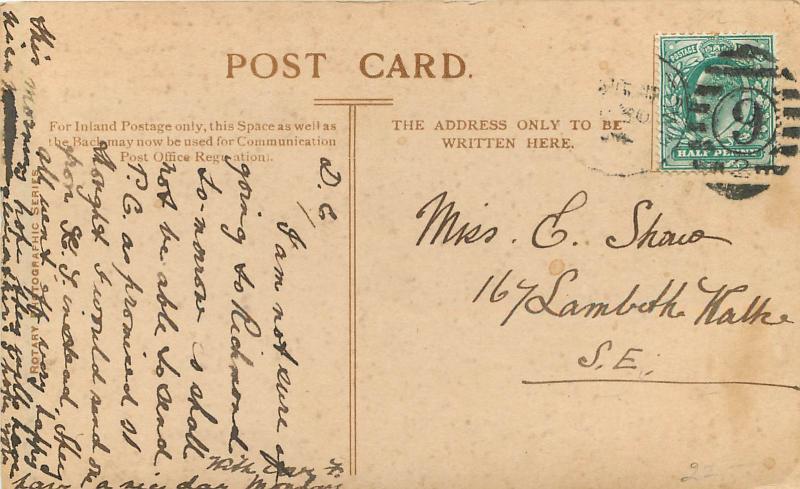 POST CARD.
For Inland Postage only, this Space as well as
the Back may now be used for Communication
Post Office Regulation).
THE ADDRESS ONLY TO BE
WRITTEN HERE.
POSTAGE
HALF PENNY
9
Miss. E. Shaw
167 Lambeth Walke
S.E.
D. E
I am not sure of
going to Richmond
to-morrow so shall
not be able to send
P.C. as promised so
thought I would send one
from K.T. instead. They
all went off very happy
this morning hope they will have
nice
With love
have a nice day Monday
ROTARY PHOTOGRAPHIC SERIES